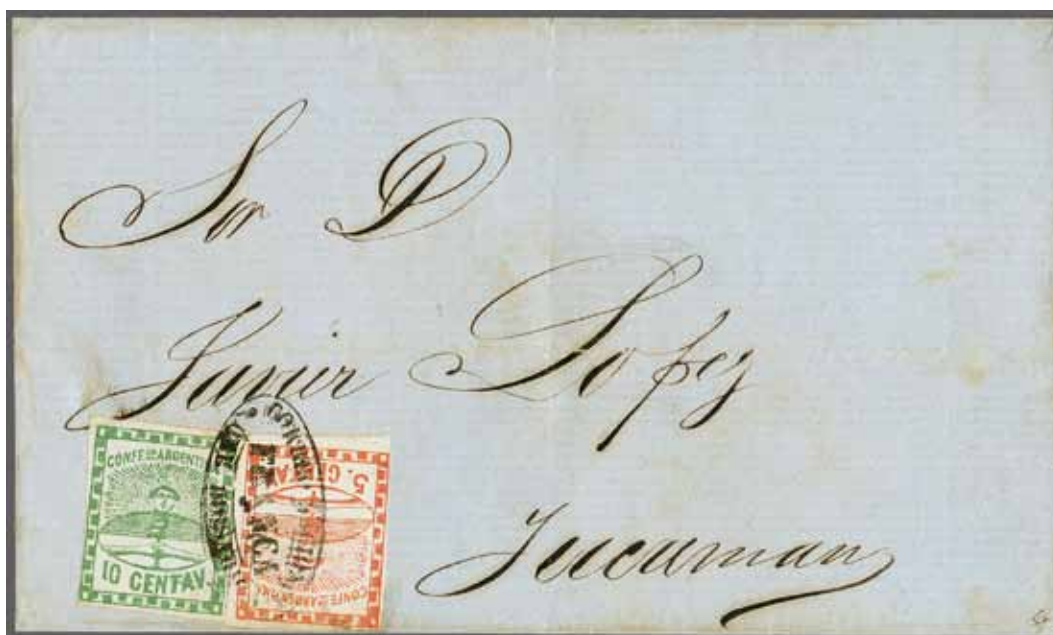 Sor D
Javier Lopez
Tucuman
CONFEON ARGENTI
10 CENTAV.
5. CENTA
CONFEON ARGENTINA